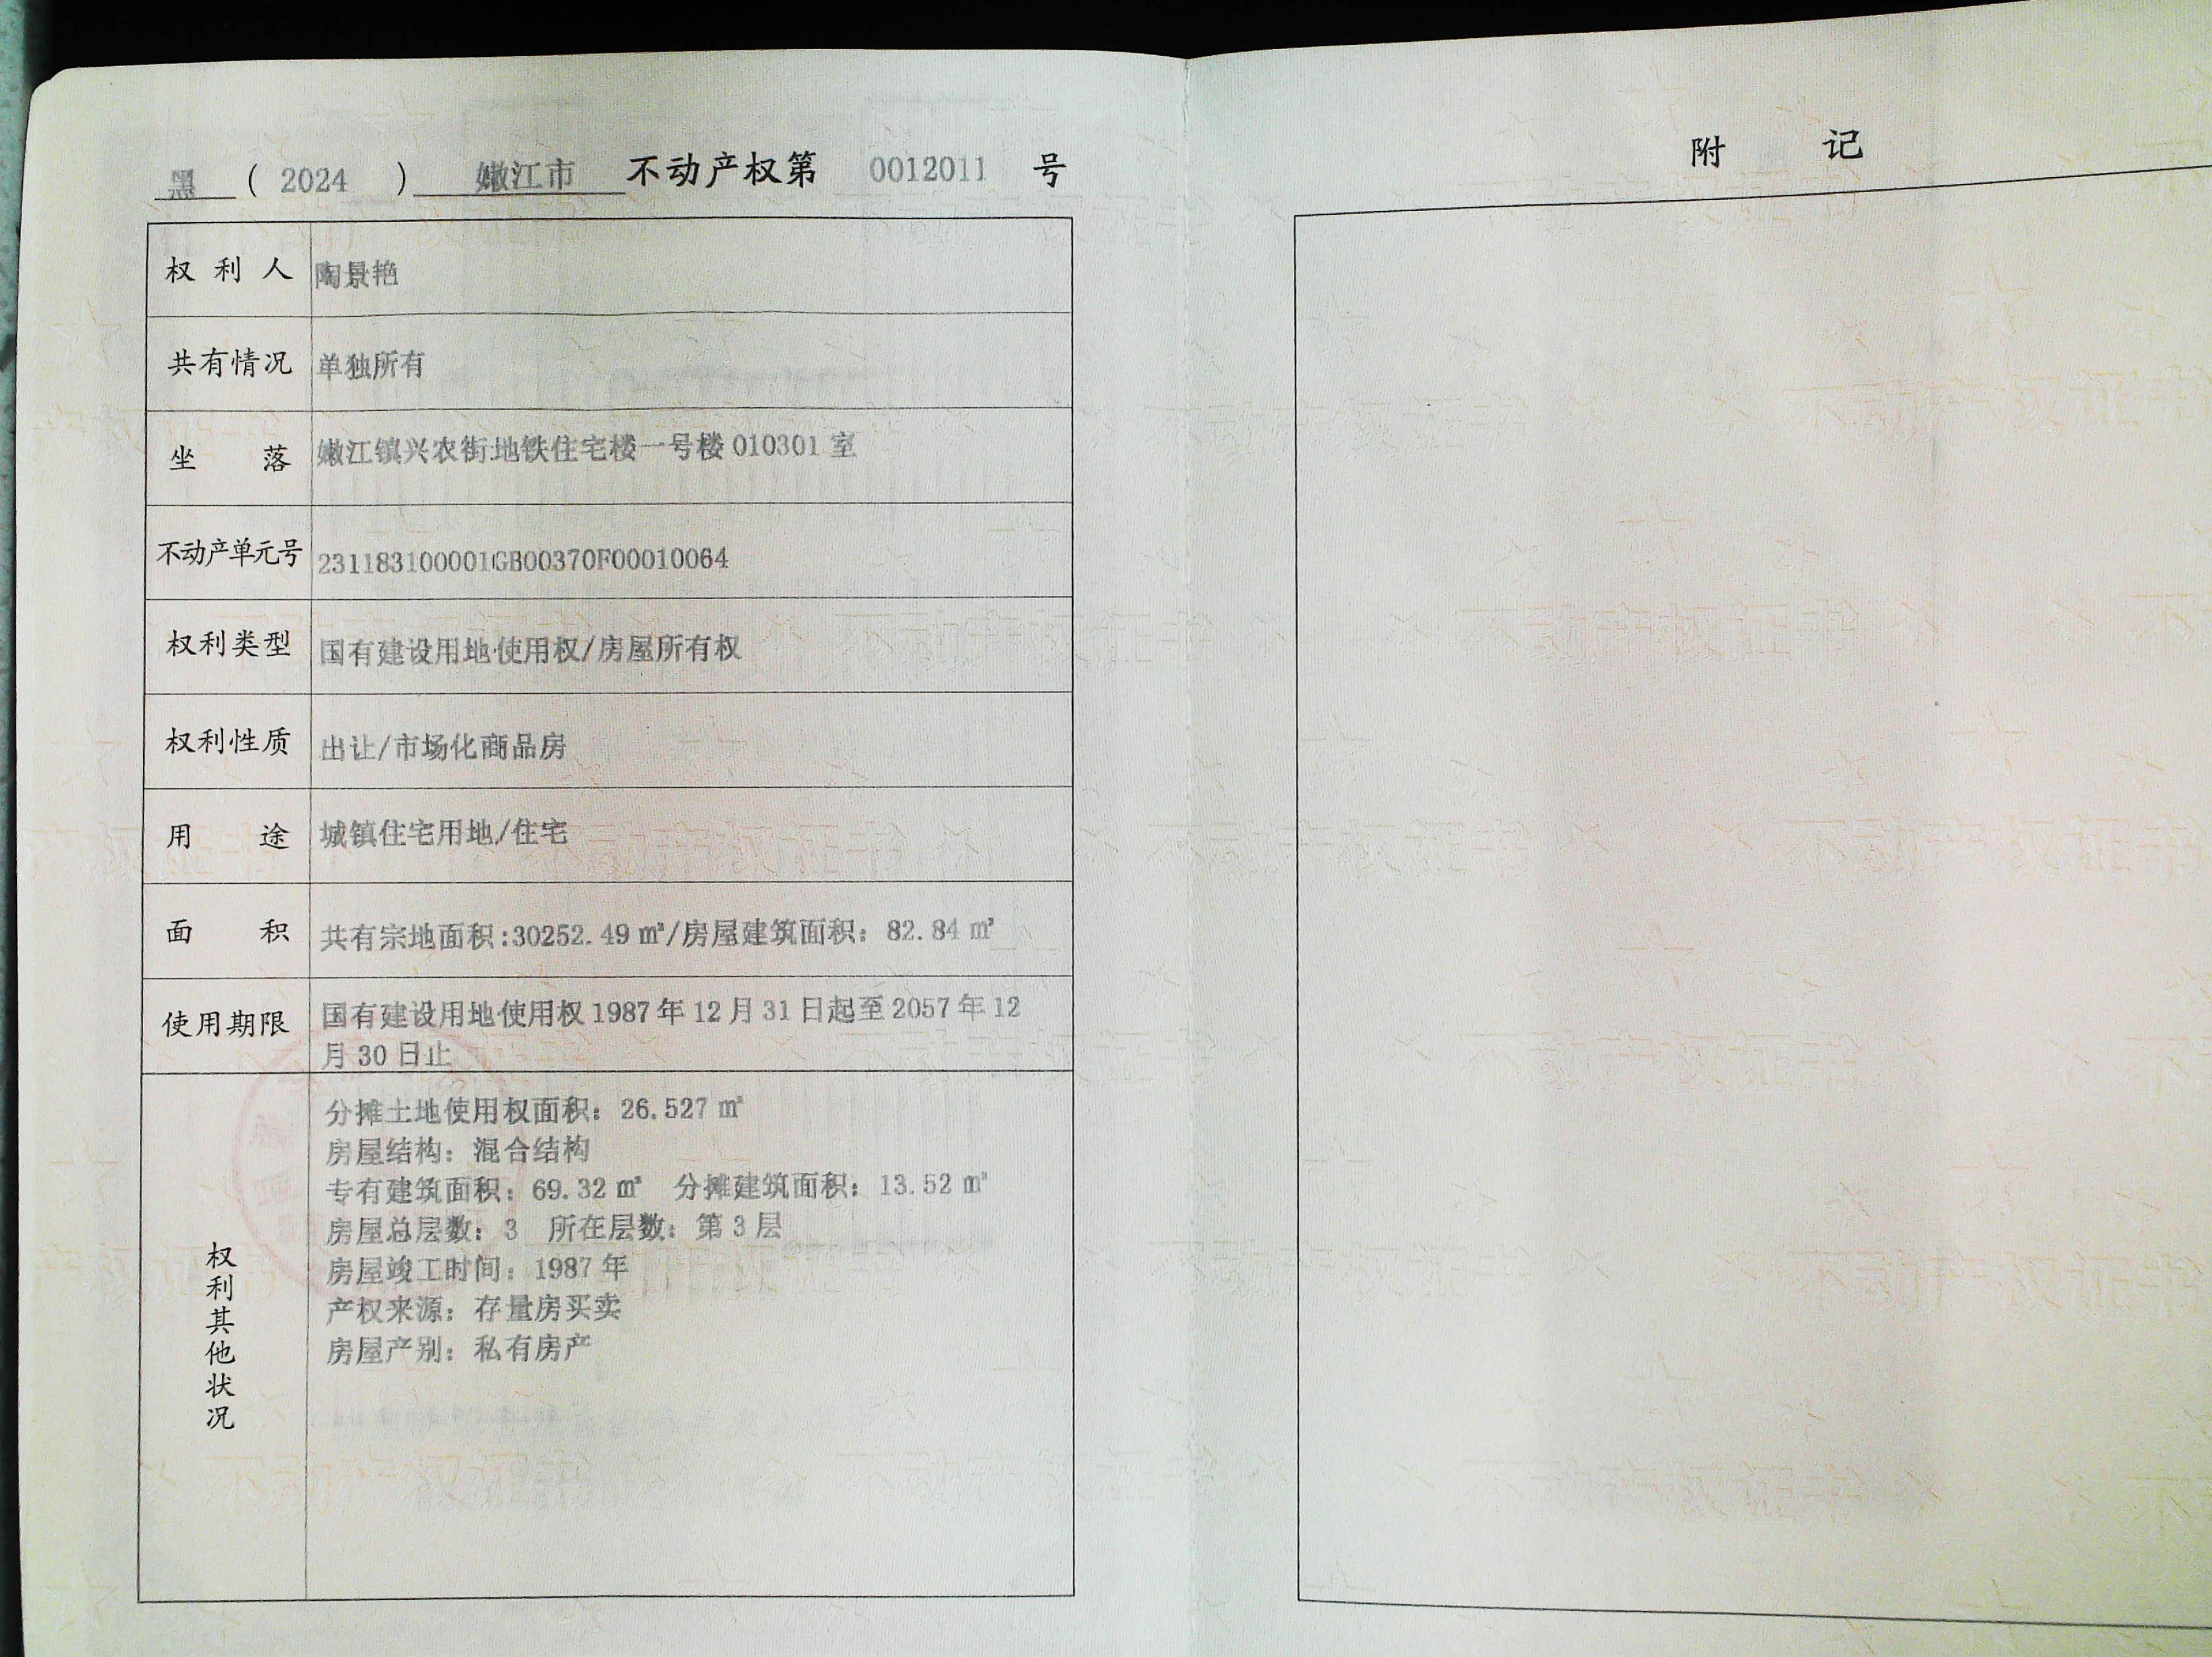 黑 ( 2024 ) 嫩江市 不动产权第 0012011 号
权利人 陶景艳
共有情况 单独所有
坐落 嫩江镇兴农街地铁住宅楼一号楼 010301 室
不动产单元号 231183100001GB00370F00010064
权利类型 国有建设用地使用权/房屋所有权
权利性质 出让/市场化商品房
用途 城镇住宅用地/住宅
面积 共有宗地面积:30252.49 ㎡/房屋建筑面积：82.84 ㎡
使用期限 国有建设用地使用权 1987 年 12 月 31 日起至 2057 年 12
月 30 日止
权利其他状况
分摊土地使用权面积：26.527 ㎡
房屋结构：混合结构
专有建筑面积：69.32 ㎡ 分摊建筑面积：13.52 ㎡
房屋总层数：3 所在层数：第 3 层
房屋竣工时间：1987 年
产权来源：存量房买卖
房屋产别：私有房产
附记